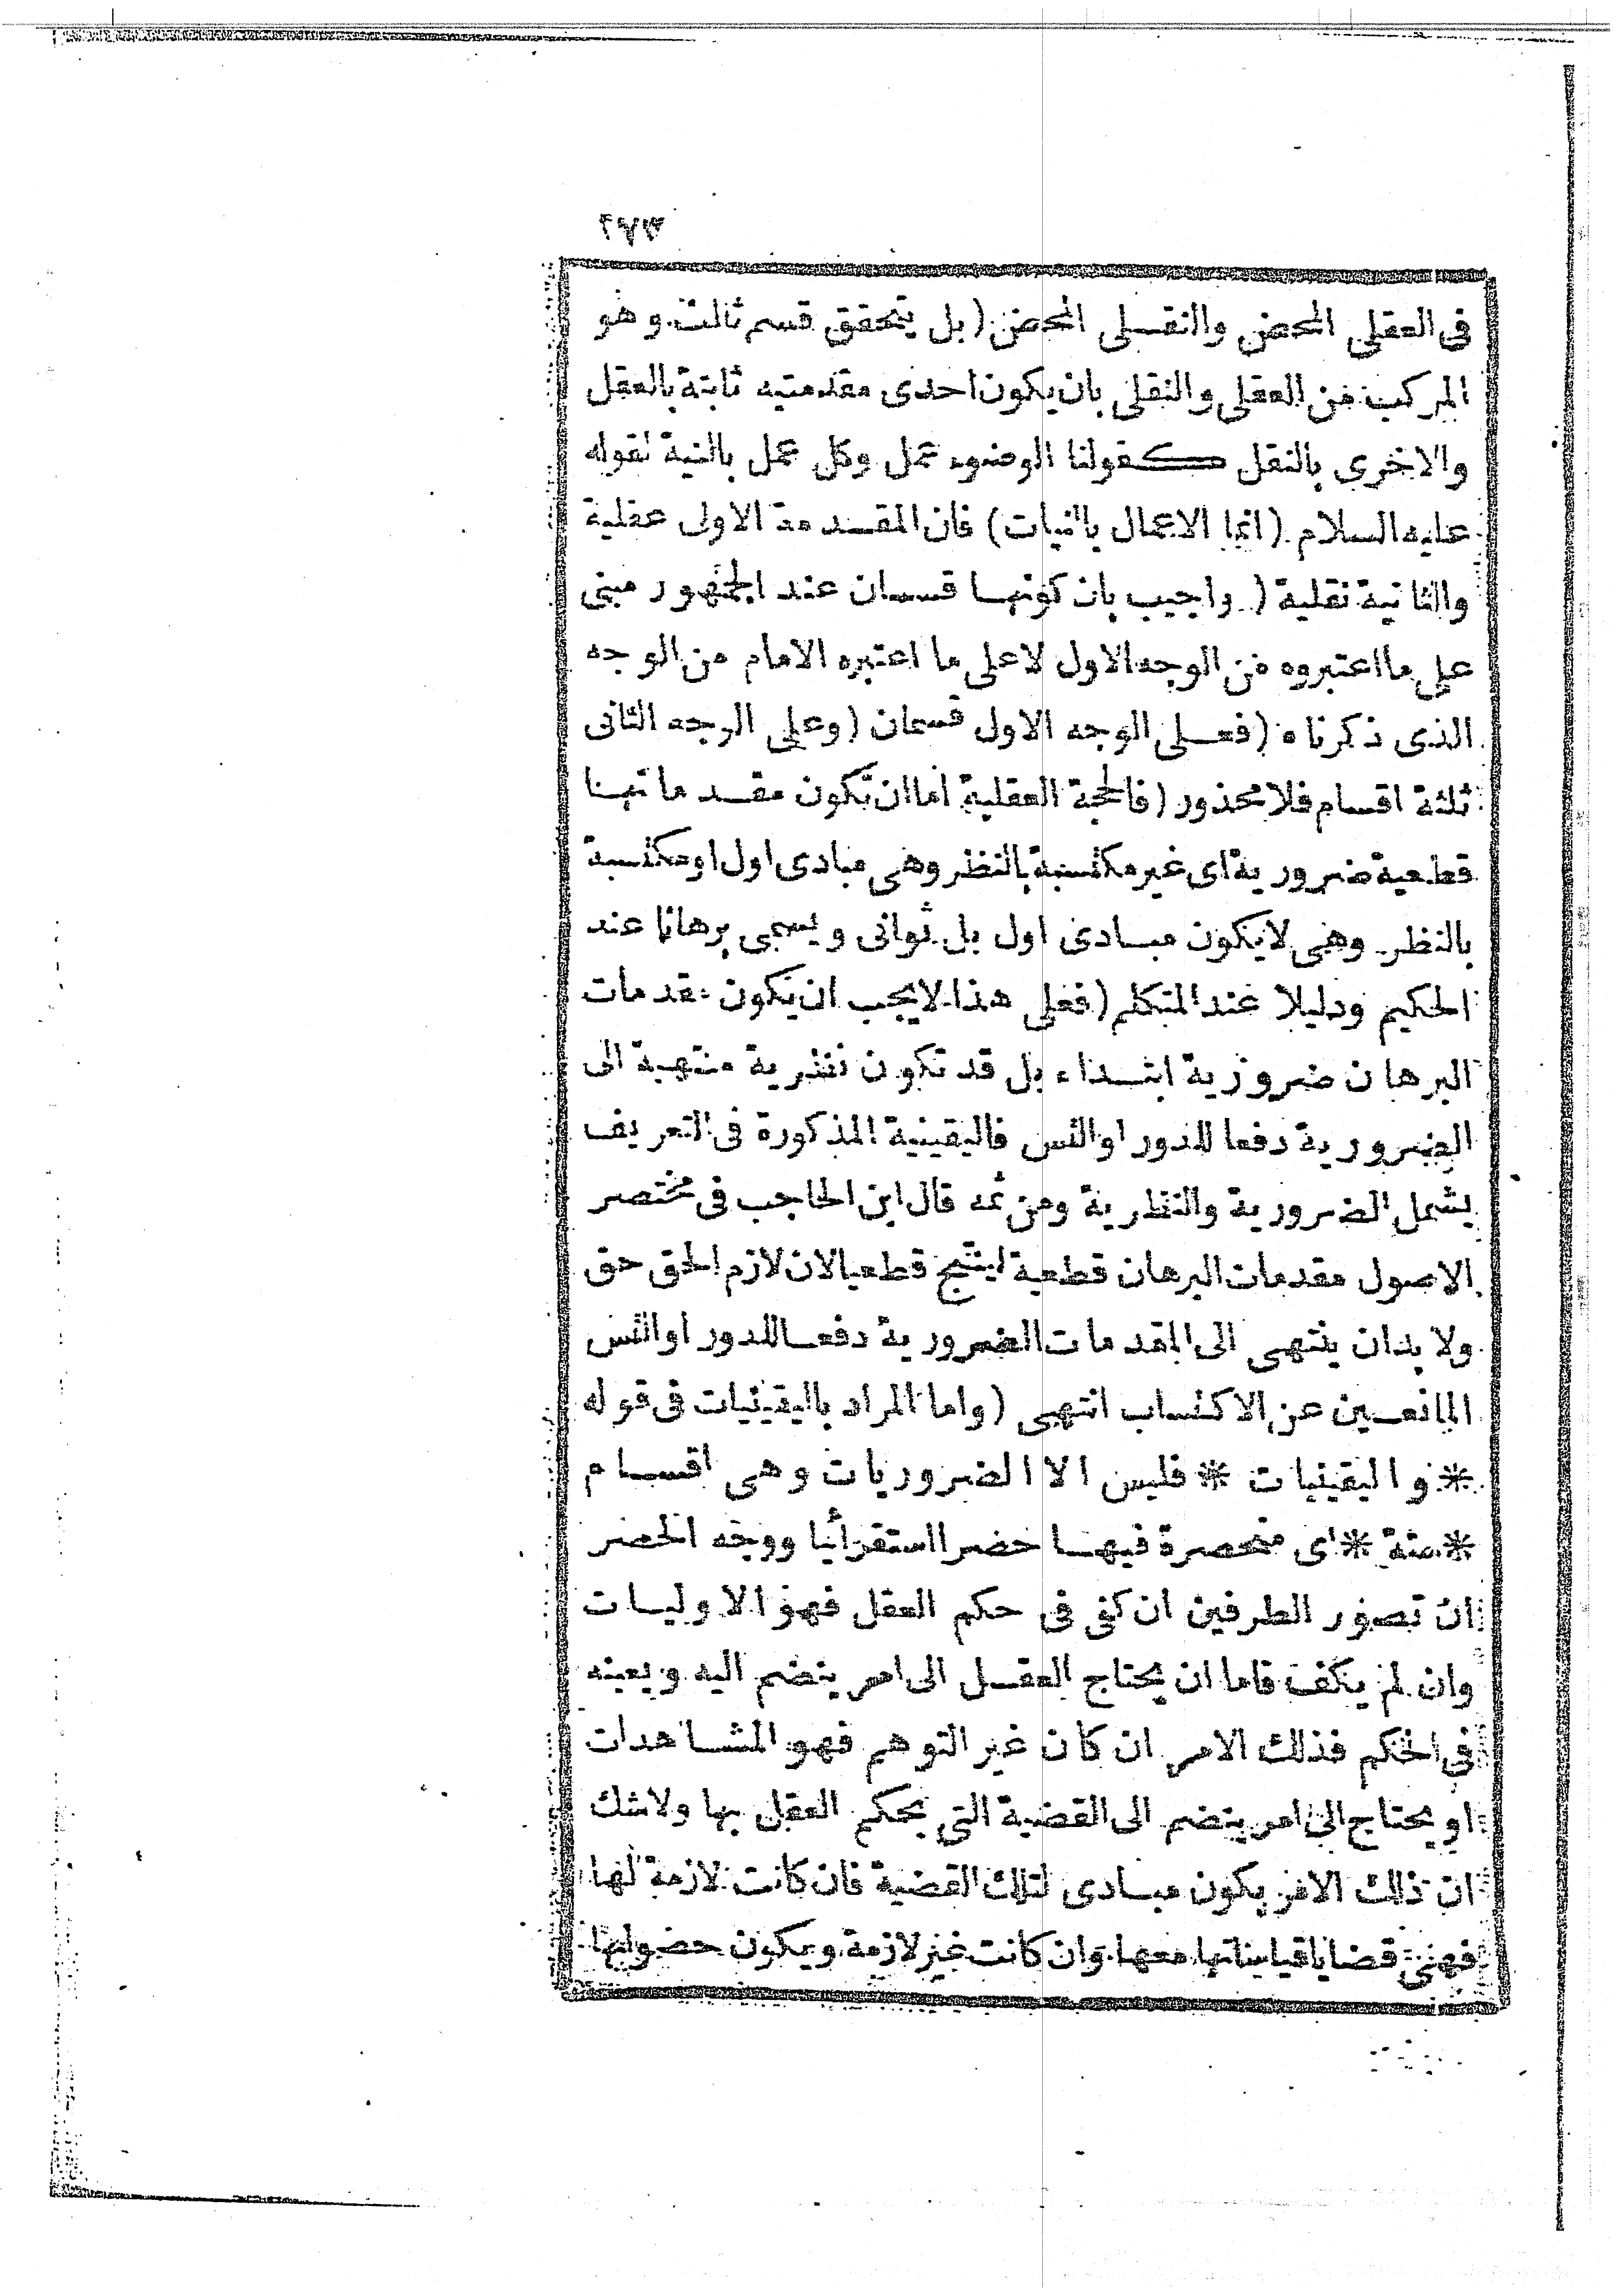 ٢٧٣
فى العقلى المحض والنقلى المحض (بل يتحقق قسم ثالث وهو
المركب من العقلى والنقلى بان يكون احدى مقدمتيه ثابتة بالعقل
والاخرى بالنقل كقولنا الوضوء عمل وكل عمل بالنية لقوله
عليه السلام (انما الاعمال بالنيات) فان المقدمة الاولى عقلية
والثانية نقلية (واجيب بان كونها قسمان عند الجمهور مبنى
على ما اعتبروه من الوجه الاول لا على ما اعتبره الامام من الوجه
الذى ذكرناه (فعلى الوجه الاول قسمان (وعلى الوجه الثانى
ثلثة اقسام فلا محذور (فالحجة العقلية اما ان تكون مقدماتها
قطعية ضرورية اى غير مكتسبة بالنظر وهى مبادى اول او مكتسبة
بالنظر وهى لا يكون مبادى اول بل ثوانى ويسمى برهانا عند
الحكيم ودليلا عند المتكلم (فعلى هذا لا يجب ان يكون مقدمات
البرهان ضرورية ابتداء بل قد تكون نظرية منتهية الى
الضرورية دفعا للدور او التس فاليقينية المذكورة فى التعريف
يشمل الضرورية والنظرية ومن ثمه قال ابن الحاجب فى مختصر
الاصول مقدمات البرهان قطعية لينتج قطعيا لان لازم الحق حق
ولا بد ان ينتهى الى المقدمات الضرورية دفعا للدور او التس
المانعين عن الاكتساب انتهى (واما المراد باليقينيات فى قوله
* واليقينيات * فليس الا الضروريات وهى اقسام
* ستة * اى منحصرة فيها حصرا استقرائيا ووجه الحصر
ان تصور الطرفين ان كفى فى حكم العقل فهو الاوليات
وان لم يكف فاما ان يحتاج العقل الى امر ينضم اليه ويعينه
فى الحكم فذلك الامر ان كان غير التوهم فهو المشاهدات
او يحتاج الى امر ينضم الى القضية التى يحكم العقل بها ولا شك
ان ذلك الامر يكون مبادى لتلك القضية فان كانت لازمة لها
فهى قضايا قياساتها معها وان كانت غير لازمة ويكون حصولها